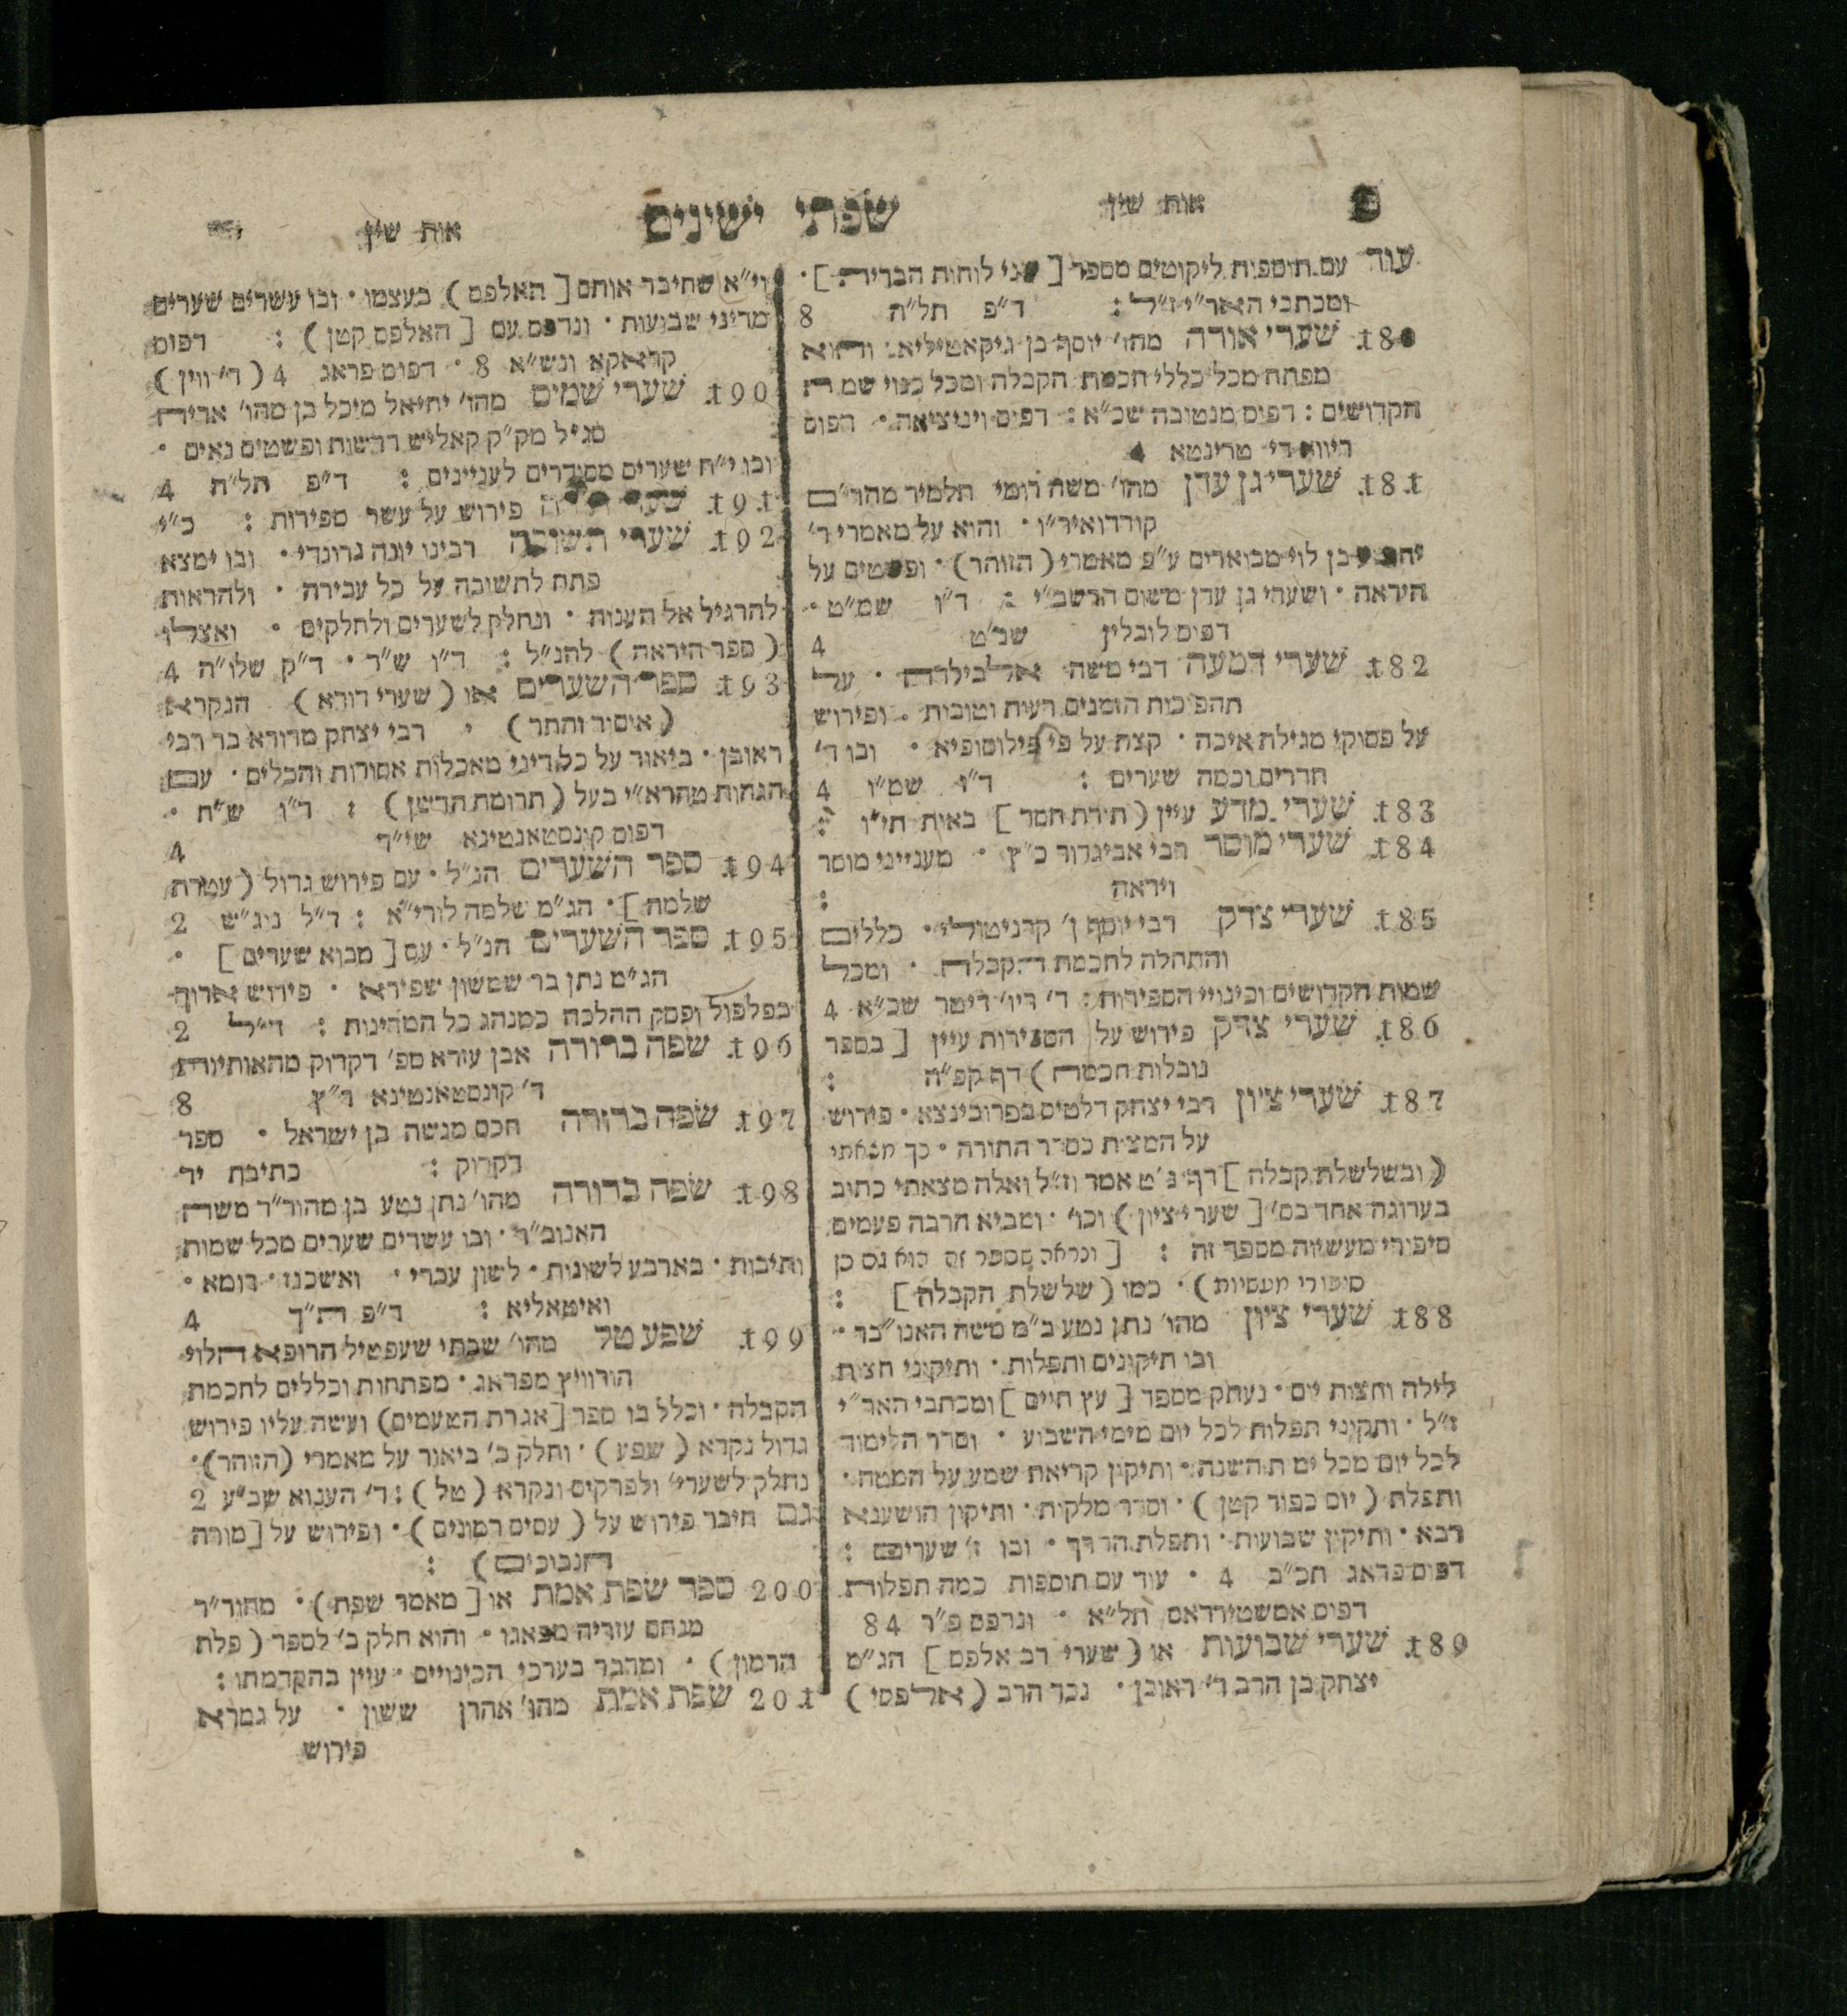 אות שין
שפתי ישינים
אות שין
עוד עם תוספות ליקוטים מספר [שני לוחות הברית].
ומכתבי האר״י ז״ל : ד״פ תל״ה 8
180 שערי אורה מהו׳ יוסף בן גיקאטיליא. והוא
מפתח מכל כללי חכמת הקבלה ומכל כנוי שמות
הקדושים : דפוס מנטובה שכ״א : דפוס ויניציאה. דפוס
ריווא די טרינטא 4
181 שערי גן עדן מהו׳ משה רומי תלמיד מהר״ם
קורדואיר״ו. והוא על מאמרי ר׳
יהושע בן לוי מבוארים ע״פ מאמרי (הזוהר). ופשטים על
היראה. ושערי גן עדן משום הרשב״י : ד״ו שמ״ט.
דפוס לובלין שנ״ט 4
182 שערי דמעה רבי משה אלבילדה. על
תהפוכות הזמנים רעות וטובות. ופירוש
על פסוקי מגילת איכה. קצת על פי פילוסופיא. ובו ד׳
חדרים וכמה שערים : ד״ו שמ״ו 4
183 שערי מדע עיין (תורת חסד] באות תי״ו :
184 שערי מוסר רבי אביגדור כ״ץ. מענייני מוסר
ויראה :
185 שערי צדק רבי יוסף ן׳ קרניטול״י. כללים
והתחלה לחכמת הקבלה. ומכל
שמות הקדושים וכינויי הספירות : ד׳ ריו׳ דיטר שכ״א 4
186 שערי צדק פירוש על הספירות עיין [בספר
נובלות חכמה) דף קפ״ה :
187 שערי ציון רבי יצחק דלטיס בפרובינצא. פירוש
על המצות כסדר התורה. כך מצאתי
(ובשלשלת קבלה] דף נ״ט אמר וז״ל ואלה מצאתי כתוב
בערוגה אחד בס׳ [שערי ציון) וכו׳. ומביא הרבה פעמים
סיפורי מעשיות מספר זה : [ונראה שספר זה הוא גם כן
סיפורי מעשיות). כמו (שלשלת הקבלה] :
188 שערי ציון מהו׳ נתן נטע ב״מ משה האנו״בר.
ובו תיקונים ותפלות. ותיקוני חצות
לילה וחצות יום. נעתק מספר [עץ חיים] ומכתבי האר״י
ז״ל. ותקוני תפלות לכל יום מימי השבוע. וסדר הלימוד
לכל יום מכל ימות השנה. ותיקון קריאת שמע על המטה.
ותפלת (יום כפור קטן). וסדר מלקות. ותיקון הושענא
רבא. ותיקון שבועות. ותפלת הדרך. ובו ז׳ שערים :
דפוס פראג תכ״ב 4. עוד עם תוספות כמה תפלות
דפוס אמשטירדאם תל״א. ונדפס פ״ר 84
189 שערי שבועות או (שערי רב אלפס] הג״מ
יצחק בן הרב ר׳ ראובן. נכד הרב (אלפסי)
וי״א שחיבר אותם [האלפס) בעצמו. ובו עשרים שערים
מדיני שבועות. ונדפס עם [האלפס קטן) : דפוס
קראקא ונש״א 8. דפוס פראג 4 (ד׳ ווין)
190 שערי שמים מהו׳ יחיאל מיכל בן מהו׳ אריה
סג״ל מק״ק קאליש דרשות ופשטים נאים.
ובו י״ח שערים מסודרים לעניינים : ד״פ תל״ה 4
191 שערי פירוש על עשר ספירות : כ״י
192 שערי תשובה רבינו יונה גרונדי. ובו ימצא
פתח לתשובה על כל עבירה. ולהראות
להרגיל אל תענות. ונחלק לשערים ולחלקים. ואצלו
(ספר היראה) להנ״ל : ד״ו ש״ד. ד״ק שלו״ה 4
193 ספר השערים או (שערי דורא) הנקרא
(איסור והתר). רבי יצחק מדורא בר רבי
ראובן. ביאור על כל דיני מאכלות אסורות והכלים. עם
הגהות מהרא״י בעל (תרומת הדשן) : ד״ו ש״ח.
דפוס קונסטאנטינא שי״ד 4
194 ספר השערים הנ״ל. עם פירוש גדול (עטרת
שלמה]. הג״מ שלמה לורי״א : ד״ל נוג״ש 2
195 ספר השערים הנ״ל. עם [מבוא שערים].
הג״מ נתן בר שמשון שפירא. פירוש ארוך
בפלפול ופסק ההלכה כמנהג כל המדינות : ד״ל 2
196 שפה ברורה אבן עזרא ספ׳ דקדוק מהאותיות
ד׳ קונסטאנטינא ר״ץ 8
197 שפה ברורה חכם מנשה בן ישראל. ספר
דקדוק : כתיבת יד
198 שפה ברורה מהו׳ נתן נטע בן מהור״ר משה
האנוב״ר. ובו עשרים שערים מכל שמות
ותיבות. בארבע לשונות. לשון עברי. ואשכנז. רומא.
ואיטאליא : ד״פ ת״ך 4
199 שפע טל מהו׳ שבתי שעפטיל הרופא הלוי
הורוויץ מפראג. מפתחות וכללים לחכמת
הקבלה. וכלל בו ספר [אגרת הטעמים) ועשה עליו פירוש
גדול נקרא (שפע). וחלק ב׳ ביאור על מאמרי (הזוהר).
נחלק לשערי׳ ולפרקים ונקרא (טל) : ד׳ הענוא שב״ע 2
גם חיבר פירוש על (עסים רמונים). ופירוש על [מורה
הנבוכים) :
200 ספר שפת אמת או [מאמר שפת). מהור״ר
מנחם עזריה מפאנו. והוא חלק ב׳ לספר (פלח
הרמון). ומדבר בערכי הכינויים. עיין בהקדמתו :
201 שפת אמת מהו׳ אהרן ששון. על גמרא
פירוש